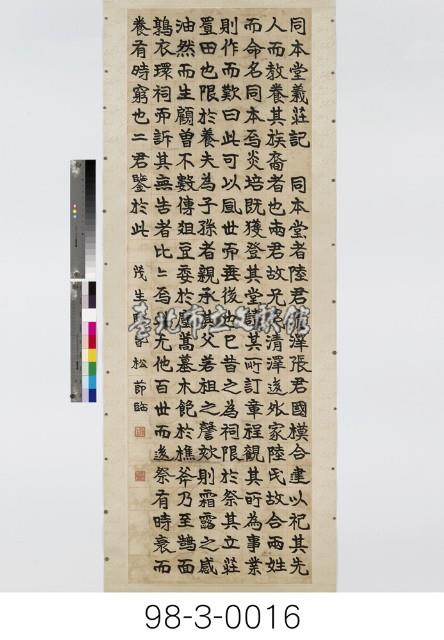 同本堂義莊記　同本堂者陸君　澤張君國模合建以祀其先
人而教養其族裔者也兩君故兄　清澤送外家陸氏故合兩姓
而命名同本焉炎培既獲登其堂　其所訂章程觀其所為事業
則作而歎曰此可以風世而垂後也已昔之為祠限於祭其立莊
置田也限於養夫為子孫者親承其父若祖之謦欬則霜露之感
油然而生顧曾不數傳俎豆委於　蒿墓木飽於樵斧乃至鵠面
鶉衣環祠而訴其無告者比比焉　他百世而遙祭有時衰而
養有時窮也二君鑒於此
茂生　松節臨
臺北市立文獻館
98-3-0016